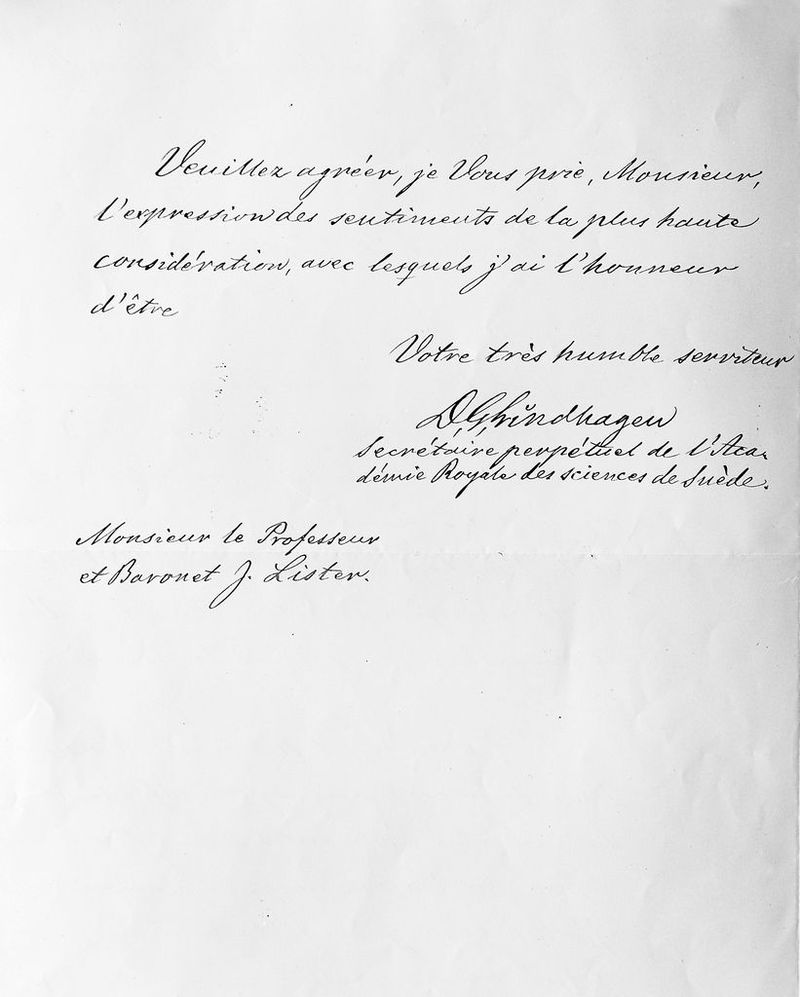 Veuillez agréer, je Vous prie, Monsieur,
l'expression des sentiments de la plus haute
considération, avec lesquels j'ai l'honneur
d'être
Votre très humble serviteur
D.G. Lindhagen
Secrétaire perpétuel de l'Aca-
démie Royale des sciences de Suède.
Monsieur le Professeur
et Baronet J. Lister.